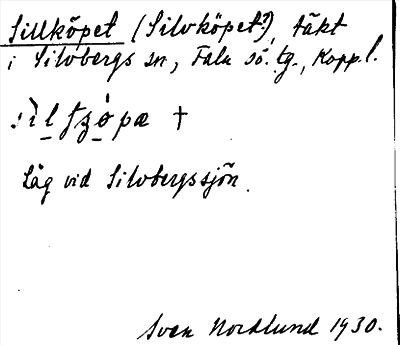 Sillköpet (Silvköpet?), täkt
i Silvbergs sn, Falu sö. tg., Kopp.l.
sìlʃzópæ †
Låg vid Silvbergssjön.
Sven Nordlund 1930.